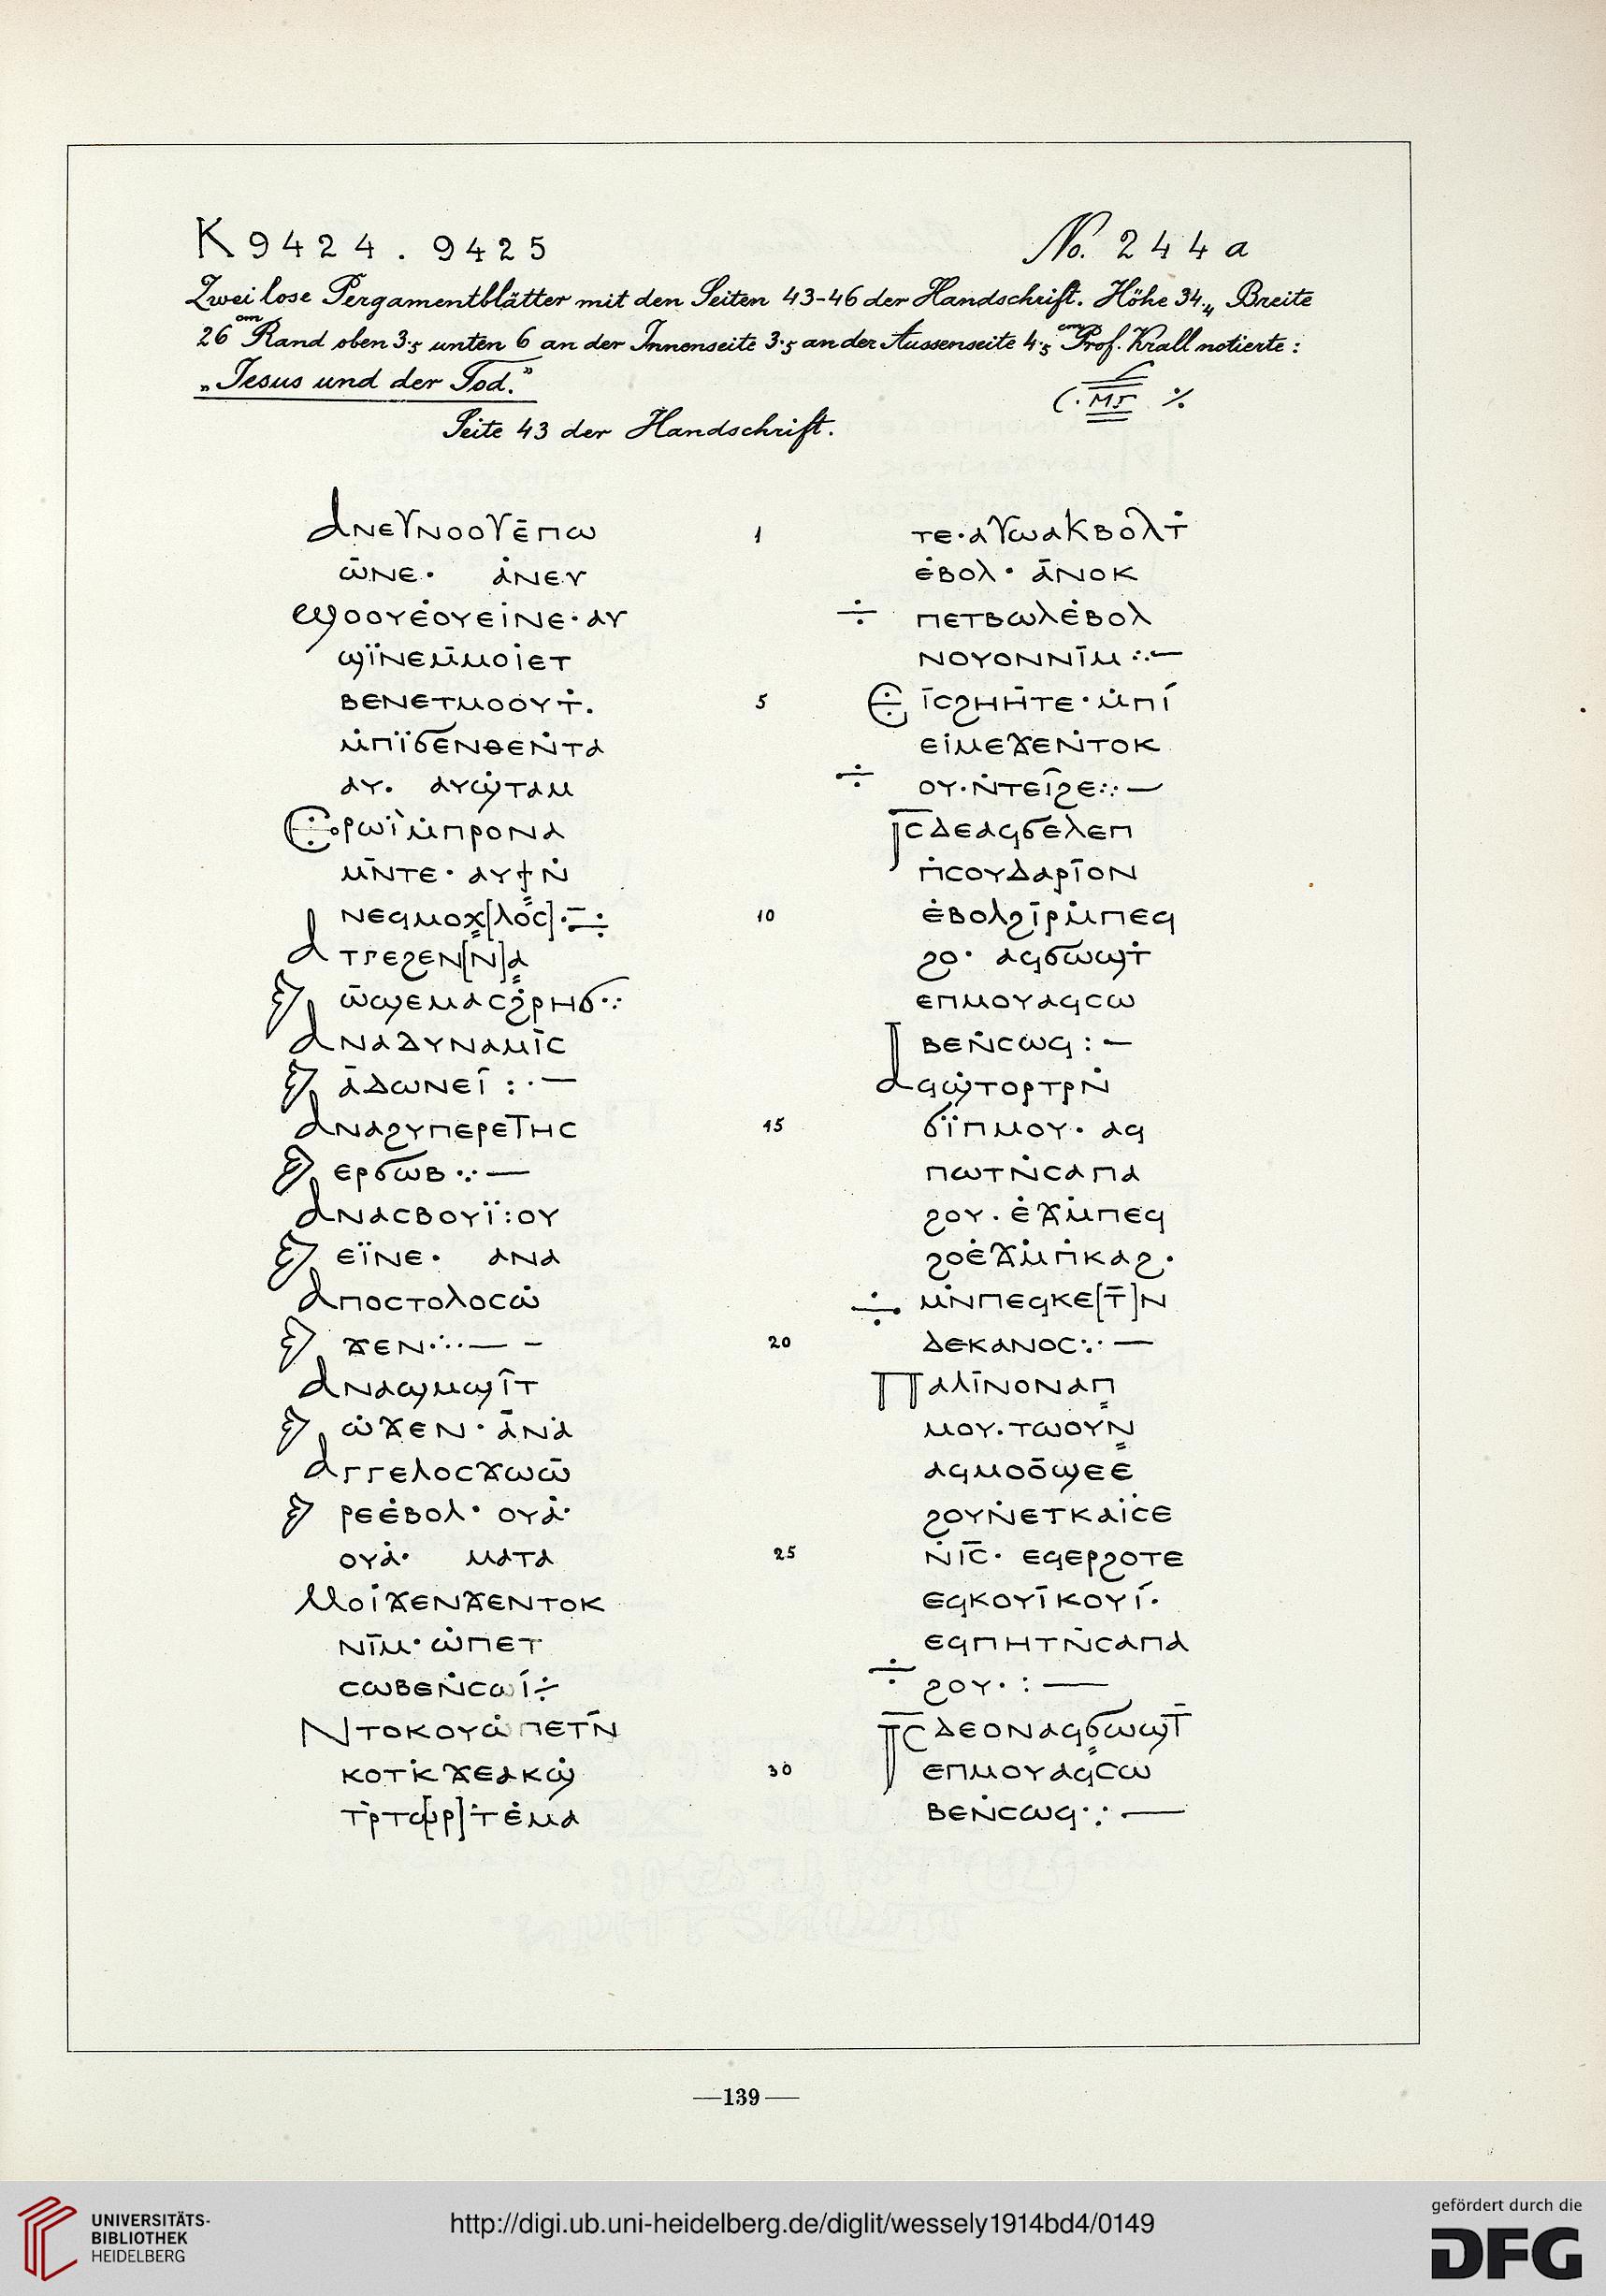 K 9424 . 9425
No. 244 a
Zwei lose Pergamentblätter mit den Seiten 43-46 der Handschrift. Höhe 34·4, Breite
26 cm Rand oben 3·5 unten 6 an der Innenseite 3·5 an der Aussenseite 4·5 cm Prof. Krall notierte :
„Jesus und der Tod.”
Seite 43 der Handschrift.
ⲁⲛⲉⲩⲛⲟⲟⲩⲉ̄ⲡⲱ
ⲱ̄ⲛⲉ· ⲁ̇ⲛⲉⲩ
ⲉϣⲟⲟⲩⲉ̇ⲟⲩⲉⲓ̇ⲛⲉ·ⲁⲩ
ϣⲓ̈ⲛⲉⲙ̄ⲙⲟⲓ̇ⲉⲧ
ⲃⲉⲛⲉⲧⲙⲟⲟⲩⲧ̇.
ⲙ̇ⲡⲓ̈ϭⲉⲛⲑⲉⲛ̇ⲧⲁ
ⲁⲩ. ⲁⲩϣ̇ⲧⲁⲙ
ⲉⲣⲱⲓ̈ⲙ̇ⲡⲣⲟⲛⲁ
ⲙ̄ⲛⲧⲉ· ⲁⲩϯⲛ̇
ⲛⲉϥⲙⲟⲭ[ⲗⲟⲥ]·
ⲁ ⲧⲅⲉϩⲉⲛ[ⲛ]ⲁ
ⲱ̄ϣⲉⲙⲁⲥϩ̇ⲣⲏϭ
ⲁⲛⲁⲇⲩⲛⲁⲙⲓ̄ⲥ
ⲁ̇ⲇⲱⲛⲉⲓ̄ :·—
ⲁⲛⲁϩⲩⲡⲉⲣⲉⲧⲏⲥ
ⲉⲣϭⲱⲃ ·:—
ⲁⲛⲁⲥⲃⲟⲩⲓ̈:ⲟⲩ
ⲉⲓ̈ⲛⲉ· ⲁⲛⲁ
ⲁⲡⲟⲥⲧⲟⲗⲟⲥⲱ̇
ϫⲉⲛ·:·— –
ⲁⲛⲁϣⲙϣⲓ̂ⲧ
ⲱ̇ϫⲉⲛ·ⲁ̄ⲛⲁ̇
ⲁⲅⲅⲉⲗⲟⲥϫⲱⲱ̄
ⲣⲉⲉ̇ⲃⲟⲗ· ⲟⲩⲁ̇·
ⲟⲩⲁ̇· ⲙⲁⲧⲁ
ⲙⲟⲓ̇ϫⲉⲛϫⲉⲛⲧⲟⲕ
ⲛⲓ̄ⲙ·ⲱ̇ⲡⲉⲧ
ⲥⲱⲃⲉⲛ̇ⲥⲱⲓ̇÷
ⲛⲧⲟⲕⲟⲩⲱ̇ⲡⲉⲧⲛ̄
ⲕⲟⲧⲕ̇ϫⲉⲁⲕϣ̇
ⲧⲣ̇ⲧⲱ[ⲣ]ⲧⲉ̇ⲙⲁ
1
5
10
15
20
25
30
ⲧⲉ·ⲁⲩⲱⲁⲕⲃⲟⲗⲧ̇
ⲉ̇ⲃⲟⲗ· ⲁ̄ⲛⲟⲕ
÷ ⲡⲉⲧⲃⲱⲗⲉ̇ⲃⲟⲗ
ⲛⲟⲩⲟⲛⲛⲓ̄ⲙ ·:·—
ⲉ ⲓ̄ⲥϩⲏⲏ̇ⲧⲉ·ⲙ̇ⲡⲓ̇
ⲉⲓ̇ⲙⲉϫⲉⲛ̇ⲧⲟⲕ
÷ ⲟⲩ·ⲛ̇ⲧⲉⲓ̂ϩⲉ:·—
ⲓ̄ⲥⲇⲉⲁϥϭⲉⲗⲉⲡ
ⲡ̇ⲥⲟⲩⲇⲁⲣⲓ̄ⲟⲛ
ⲉ̇ⲃⲟⲗϩⲓ̄ⲣⲙ̇ⲡⲉϥ
ϩⲟ· ⲁϥϭⲱϣⲧ̇
ⲉⲡⲙⲟⲩⲁϥⲥⲱ
ⲃⲉⲛ̇ⲥⲱϥ :—
ⲁϥϣ̇ⲧⲟⲣⲧⲣⲛ̇
ϭⲓ̈ⲡⲙⲟⲩ· ⲁϥ
ⲡⲱⲧⲛ̇ⲥⲁⲡⲁ
ϩⲟⲩ· ⲉ̇ϫⲙ̇ⲡⲉϥ
ϩⲟⲉ̇ϫⲙ̇ⲡ̇ⲕⲁϩ·
÷ ⲙ̇ⲛⲡⲉϥⲕⲉ[ⲧ̄]ⲛ
ⲇⲉⲕⲁⲛⲟⲥ:·—
ⲡⲁⲗⲓ̄ⲛⲟⲛⲁⲡ
ⲙⲟⲩ·ⲧⲱⲟⲩⲛ
ⲁϥⲙⲟⲟ̄ϣⲉⲉ̄
ϩⲟⲩⲛ̇ⲉⲧⲕⲁⲓ̇ⲥ̇ⲉ
ⲛ̇ⲓ̄ⲥ̄· ⲉϥⲉⲣϩⲟⲧⲉ
ⲉϥⲕⲟⲩⲓ̄ⲕⲟⲩⲓ̇·
ⲉϥⲡⲏⲧⲛ̇ⲥⲁⲡⲁ
÷ ϩⲟⲩ· :——
ⲓ̄ⲥⲇⲉⲟⲛⲁϥϭⲱϣⲧ̄
ⲉⲡⲙⲟⲩⲁϥⲥⲱ
ⲃⲉⲛ̇ⲥⲱϥ·:·——
—139—
UNIVERSITÄTS-
BIBLIOTHEK
HEIDELBERG
http://digi.ub.uni-heidelberg.de/diglit/wessely1914bd4/0149
gefördert durch die
DFG